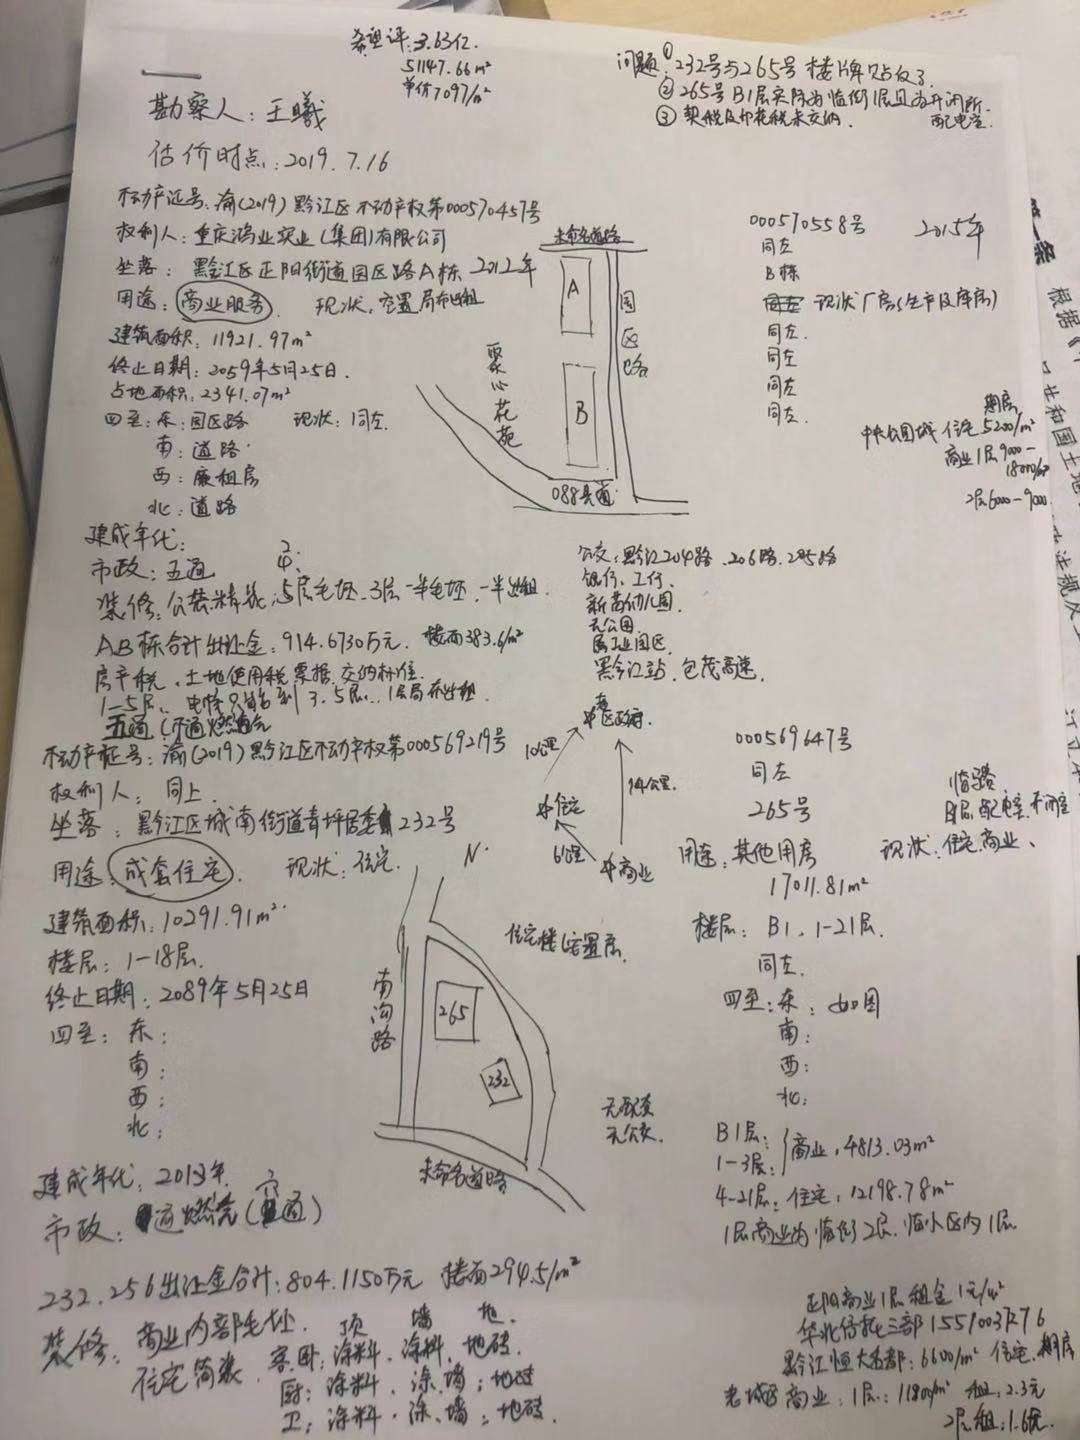 希望评:3.63亿.
51147.66m²
单价7097/m²
问题:①232号与265号楼牌贴反了
②265号B1层实际为临街1层且为开闭所.
配电室.
③契税及印花税未交纳.
勘察人:王曦
估价时点:2019.7.16
不动产证号:渝(2019)黔江区不动产权第000570457号
权利人:重庆鸿业实业(集团)有限公司
坐落:黔江区正阳街道园区路A栋 2012年
用途:商业服务. 现状:空置局部出租
建筑面积:11921.97m²
终止日期:2059年5月25日.
占地面积:2341.07m²
四至:东:园区路 现状:同左.
南:道路
西:廉租房
北:道路
未命名道路
A
B
园区路
聚心花苑
088县道
000570558号 2015年
同左
B栋
现状厂房(生产及库房)
同左.
同左
同左
同左.
期房
中央公园城 住宅5200/m²
商业1层9000-
18000/m²
2层6000-9000
建成年代:
市政:五通
装修:公装精装,5层毛坯、3层一半毛坯,一半出租.
AB栋合计出让金:914.6730万元. 楼面383.6/m²
房产税、土地使用税票据.交纳标准.
1-5层、 3.5层. 1层局部出租
五通(不通燃气)
公交:黔江204路.206路.285路
银行:工行.
新苗幼儿园.
无公园.
属工业园区.
黔江站.包茂高速.
区政府.
10公里
14公里.
住宅
6公里
商业
不动产证号:渝(2019)黔江区不动产权第000569219号
权利人:同上.
坐落:黔江区城南街道青坪居委232号
用途:成套住宅. 现状:住宅.
建筑面积:10291.91m²
楼层:1-18层.
终止日期:2089年5月25日
四至:东:
南:
西:
北:
N
南沟路
265
232
未命名道路
住宅楼1空置层.
无配套
无公交.
000569647号
同左
265号
用途:其他用房
17011.81m²
现状:住宅.商业、
楼层:B1、1-21层.
同左.
四至:东:如图
南:
西:
北:
B1层:
1-3层: 商业,4813.03m²
4-21层:住宅,12198.78m²
1层商业为临街2层.临小区内1层.
建成年代:2013年.
市政: 通燃气( 通)
232.256出让金合计:804.1150万元 楼面294.5/m²
装修:商业内部毛坯. 顶 墙 地.
住宅简装. 客卧:涂料.涂料.地砖.
厨:涂料.涂、墙:地砖
卫:涂料.涂、墙:地砖.
正阳商业1层租金1元/m²
黔江恒大名都:6600/m² 住宅.期房
老城区商业:1层:11800/m² 租:2.3元
2层租:1.6元.